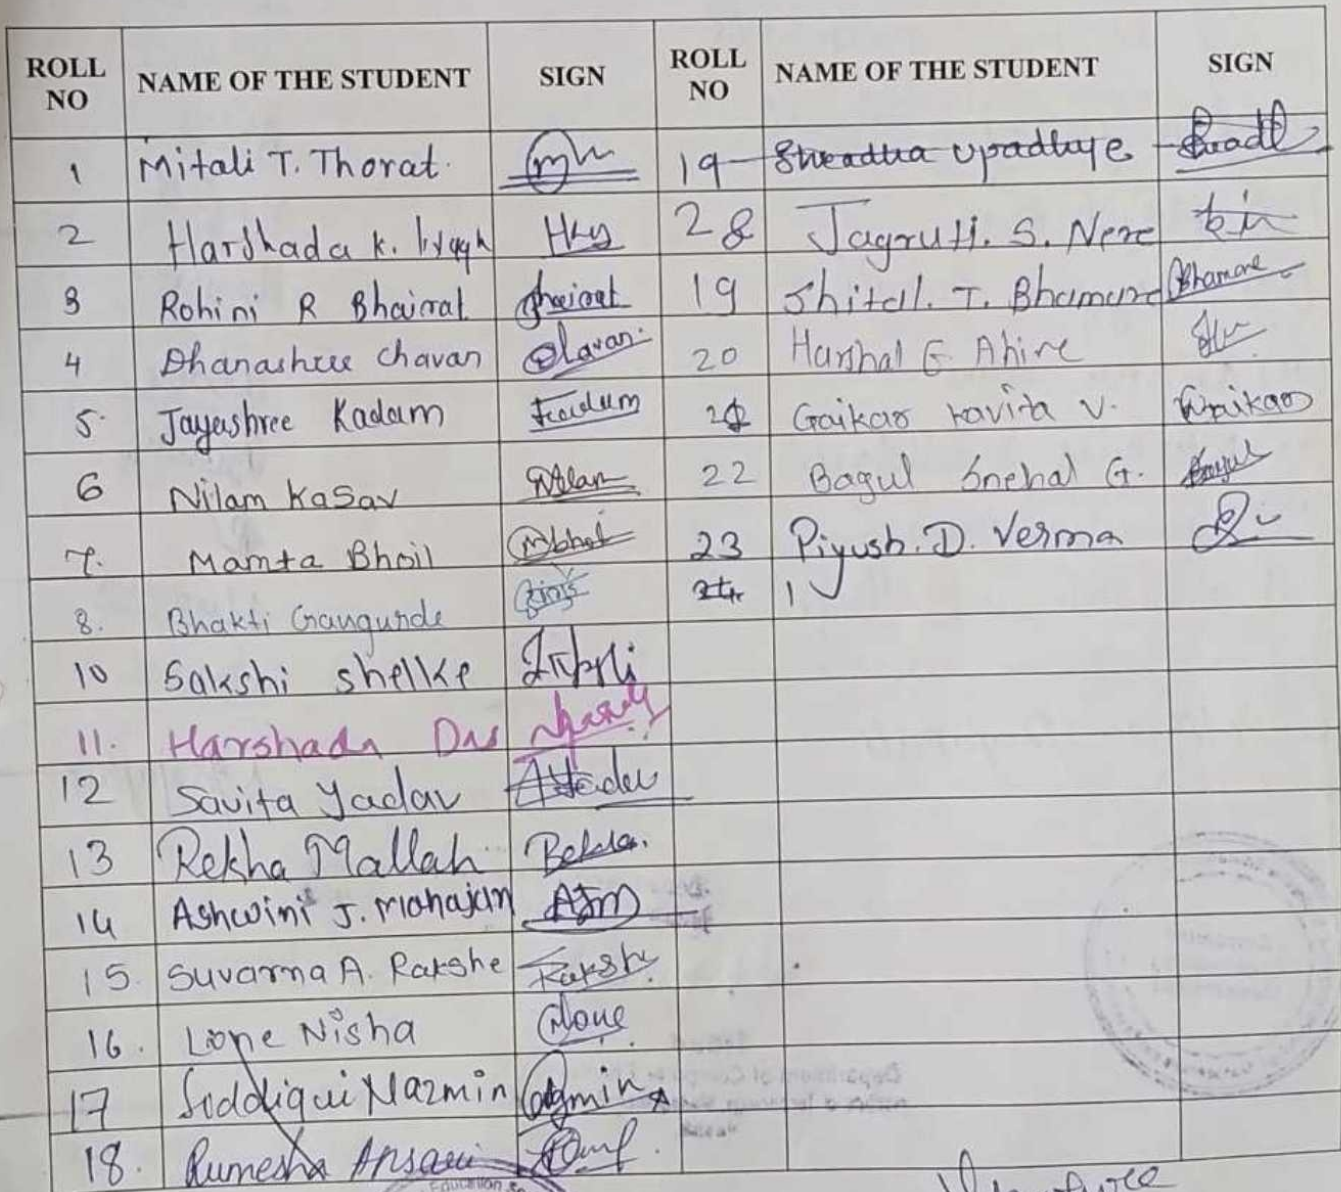 ROLL NO NAME OF THE STUDENT SIGN ROLL NO NAME OF THE STUDENT SIGN
1 Mitali T. Thorat. 19 Shradha Upadhye
2 Harshada K. Wagh 28 Jagruti. S. Nere
3 Rohini R Bhairat 19 Shital. T. Bhamare Bhamare
4 Dhanashree Chavan Chavan 20 Harshal G Ahire
5. Jayashree Kadam Kadam 21 Gaikar Kavita V. Gaikar
6 Nilam Kasav Nilam 22 Bagul Snehal G. Bagul
7. Mamta Bhoil 23 Piyush. D. Verma
8. Bhakti Gangurde
10 Sakshi Shelke
11. Harshada Das
12 Savita Yadav
13 Rekha Mallah Rekha.
14 Ashwini J. Mahajan AJM
15. Suvarna A. Rakshe
16. Lone Nisha Lone
17 Siddiqui Nazmin
18. Rumesha Ansari